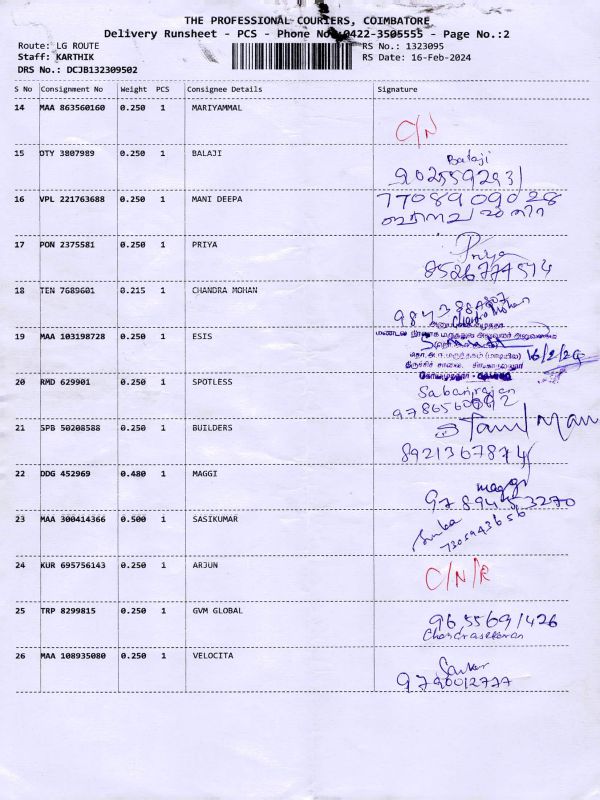 THE PROFESSIONAL COURIERS, COIMBATORE
Delivery Runsheet - PCS - Phone No.:0422-3505555 - Page No.:2
Route: LG ROUTE
RS No.: 1323095
Staff: KARTHIK
RS Date: 16-Feb-2024
DRS No.: DCJB132309502
S No Consignment No Weight PCS Consignee Details Signature
14 MAA 863560160 0.250 1 MARIYAMMAL
C/N
15 DTY 3807989 0.250 1 BALAJI
Balaji
9025592931
16 VPL 221763688 0.250 1 MANI DEEPA
7708909028
17 PON 2375581 0.250 1 PRIYA
Priya
8526774514
18 TEN 7689601 0.215 1 CHANDRA MOHAN
Chandra Mohan
19 MAA 103198728 0.250 1 ESIS
16/2/24
20 RMD 629901 0.250 1 SPOTLESS
Sabarirajan
21 SPB 50208588 0.250 1 BUILDERS
8921367874
22 DDG 452969 0.480 1 MAGGI
maggi
23 MAA 300414366 0.500 1 SASIKUMAR
7305943656
24 KUR 695756143 0.250 1 ARJUN
C/N/R
25 TRP 8299815 0.250 1 GVM GLOBAL
9655691426
Chandrasekaran
26 MAA 108935080 0.250 1 VELOCITA
Sankar
9790012777